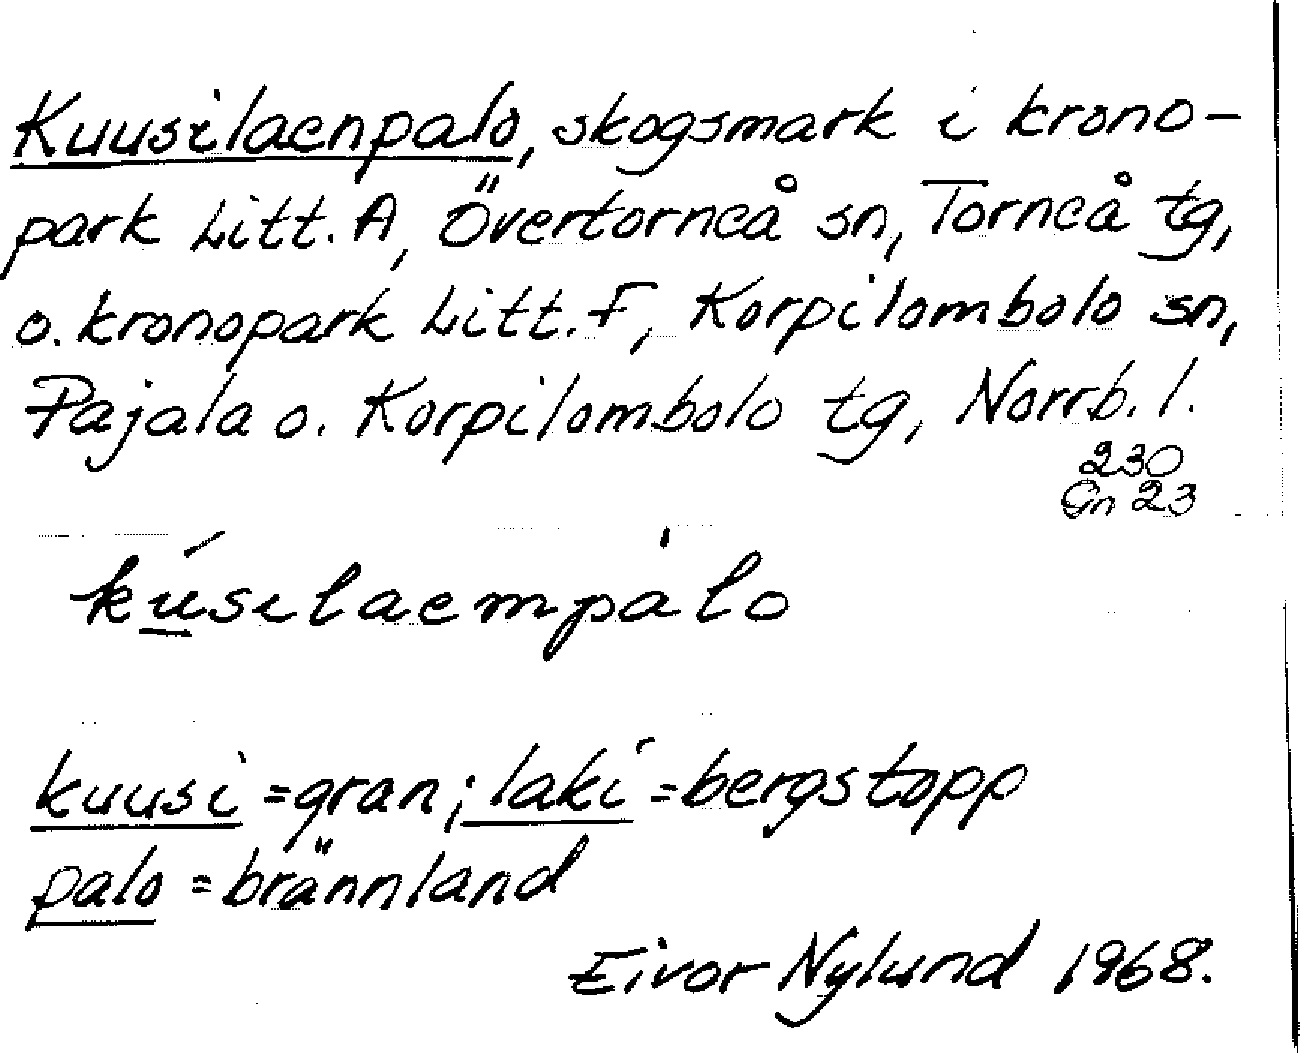 Kuusilaenpalo, skogsmark i krono-
park Litt. A, Övertorneå sn, Torneå tg,
o. kronopark Litt. F, Korpilombolo sn,
Pajala o. Korpilombolo tg, Norrb. l.
230
Gn 23
kú̲silaempàlo
kuusi = gran; laki = bergstopp
palo = brännland
Eivor Nylund 1968.